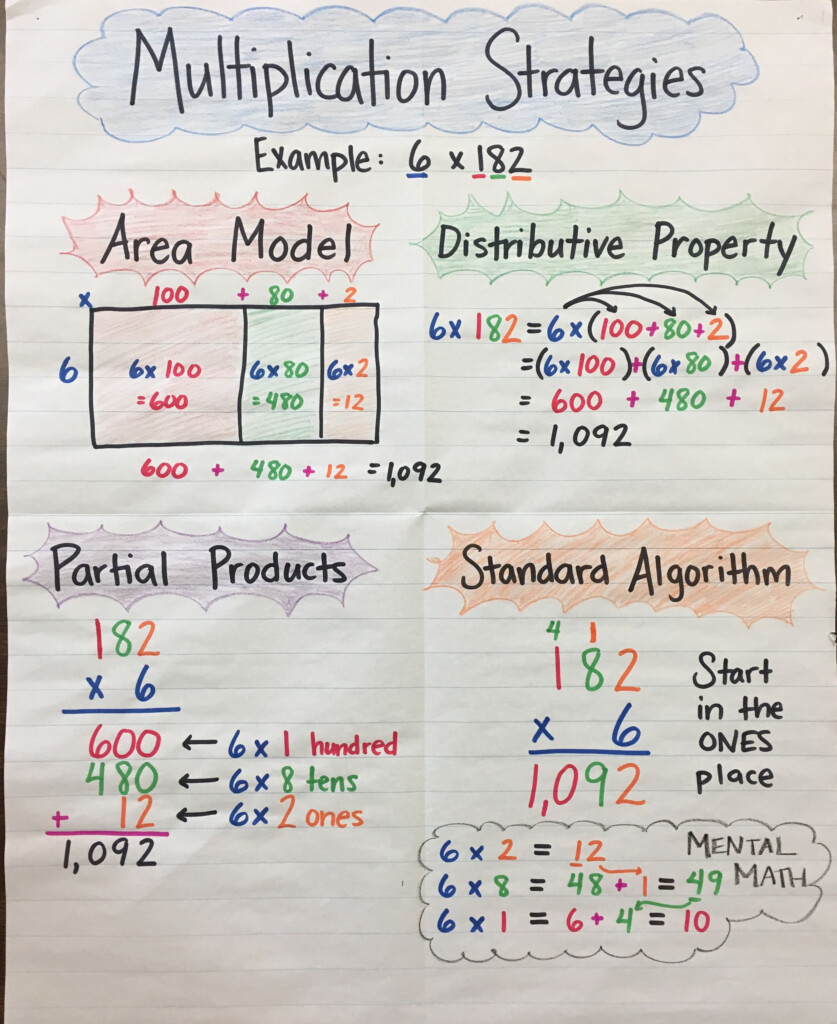 Multiplication Strategies
Example: 6 x 182
Area Model
x 100 + 80 + 2
6
6x100 6x80 6x2
=600 =480 =12
600 + 480 + 12 = 1,092
Distributive Property
6x 182 = 6x(100+80+2)
=(6x100)+(6x80)+(6x2)
= 600 + 480 + 12
= 1,092
Partial Products
182
x 6
600 ← 6x1 hundred
480 ← 6x8 tens
+ 12 ← 6x2 ones
1,092
Standard Algorithm
4 1
182
x 6
1,092
Start
in the
ONES
place
MENTAL
MATH
6 x 2 = 12
6 x 8 = 48 + 1 = 49
6 x 1 = 6 + 4 = 10